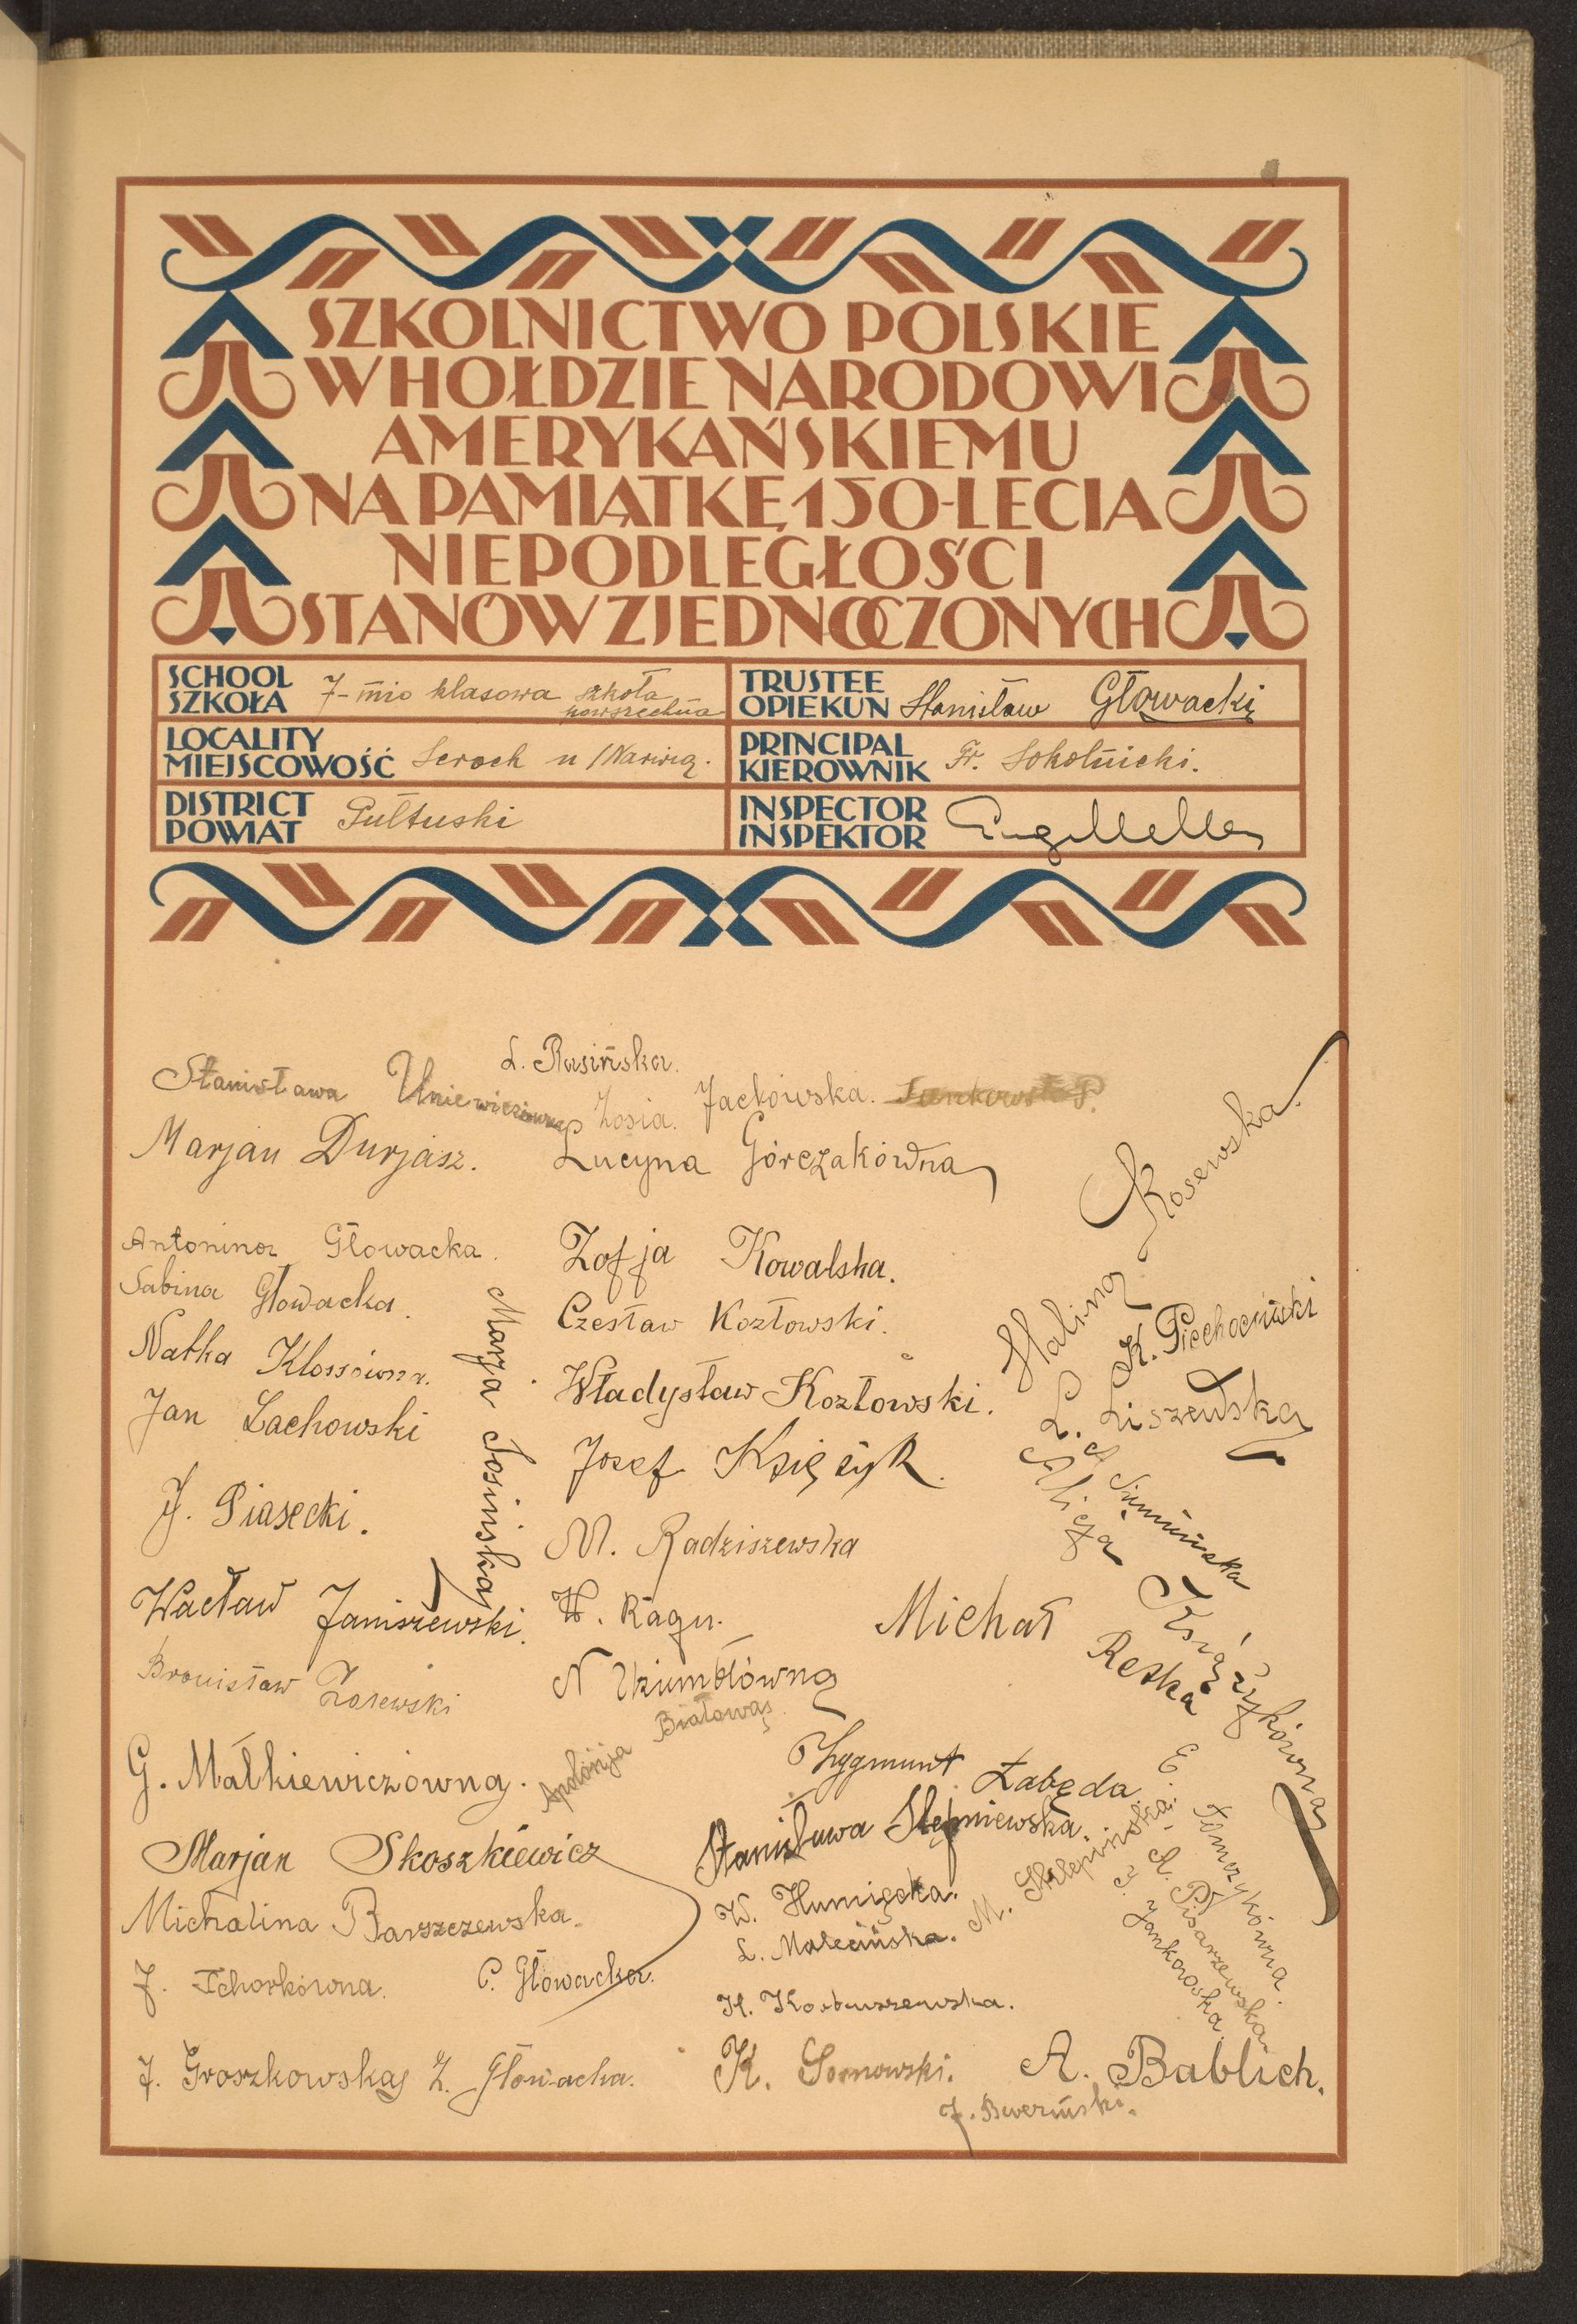 SZKOLNICTWO POLSKIE
W HOŁDZIE NARODOWI
AMERYKAŃSKIEMU
NA PAMIĄTKĘ 150-LECIA
NIEPODLEGŁOŚCI
STANÓW ZJEDNOCZONYCH
SCHOOL
SZKOŁA
7-mio klasowa szkoła
powszechna
TRUSTEE
OPIEKUN
Stanisław Głowacki
LOCALITY
MIEJSCOWOŚĆ
Serock n/Narwią.
PRINCIPAL
KIEROWNIK
Fr. Sokolnicki.
DISTRICT
POWIAT
Pułtuski
INSPECTOR
INSPEKTOR
L. Rusińska.
Stanisława
Zosia. Jackowska.
Marjan Durjasz.
Lucyna Górczakówna
Halina Kosewska.
Antonina Głowacka.
Zofja Kowalska.
Sabina Głowacka.
Czesław Kozłowski.
K. Piechociński
Natka Klossówna.
Marja Josińska
Władysław Kozłowski.
L. Liszewska
Jan Lachowski
Josef Księżyk.
A. Sumińska
Alicja Książykówna
J. Piasecki.
M. Radziszewska
Wacław Janiszewski.
H. Ragu.
Michał Retka
Bronisław Zalewski
N
Apolonja Białowąs.
G. Małkiewiczówna.
Zygmunt Łabęda.
E. Tomczykówna.
Marjan Skoszkiewicz
Stanisława Stępniewska.
M. Sklepińska.
A. Pisarzewska
J. Jankowska.
Michalina Barszczewska.
W. Humięcka.
L. Malecińska.
J. Tchorkówna.
C. Głowacka.
H. Korbuszewska.
J. Groszkowska
Z. Głowacka.
K. Sosnowski.
A. Bablich.
J.